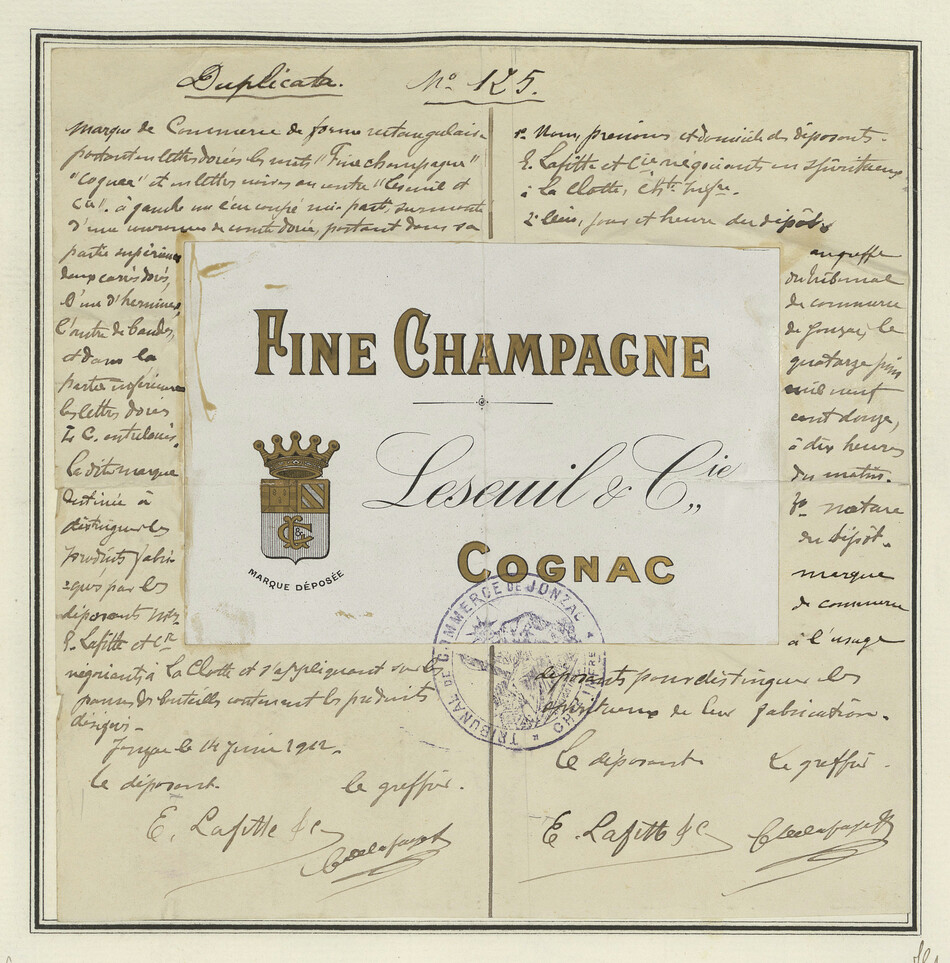 Duplicata.
No 125.
Marque de Commerce de forme rectangulaire
portant en lettres dorées les mots "Fine champagne"
"Cognac" et en lettres noires au centre "Leseuil et
Cie". à gauche un écu coupé mi-parti, surmonté
d'une couronne de comte dorée, portant dans sa
partie supérieure
deux carrés dorés
l'un d'hermines,
l'autre de bandes,
et dans la
partie inférieure
les lettres dorées
L C. entrelacées.
la dite marque
destinée à
distinguer les
produits fabri-
-qués par les
déposants
E. Lafitte et Cie
négociants à La Clotte et s'appliquant sur la
panse des bouteilles contenant les produits
désignés.
Jonzac le 14 Juin 1912.
Le déposant
le greffier.
E. Lafitte & C
1o Noms, prénoms et domicile des déposants.
E. Lafitte et Cie négociants en spiritueux
à La Clotte,
2o lieu, jour et heure du dépôt
au greffe
du tribunal
de commerce
de Jonzac, le
quatorze juin
mil neuf
cent douze,
à dix heures
du matin.
3o nature
du dépôt.
marque
de commerce
à l'usage
déposants pour distinguer les
spiritueux de leur fabrication.
Le déposant
Le greffier.
E. Lafitte & C
FINE CHAMPAGNE
Leseuil & Cie,,
COGNAC
MARQUE DÉPOSÉE
TRIBUNAL DE COMMERCE DE JONZAC